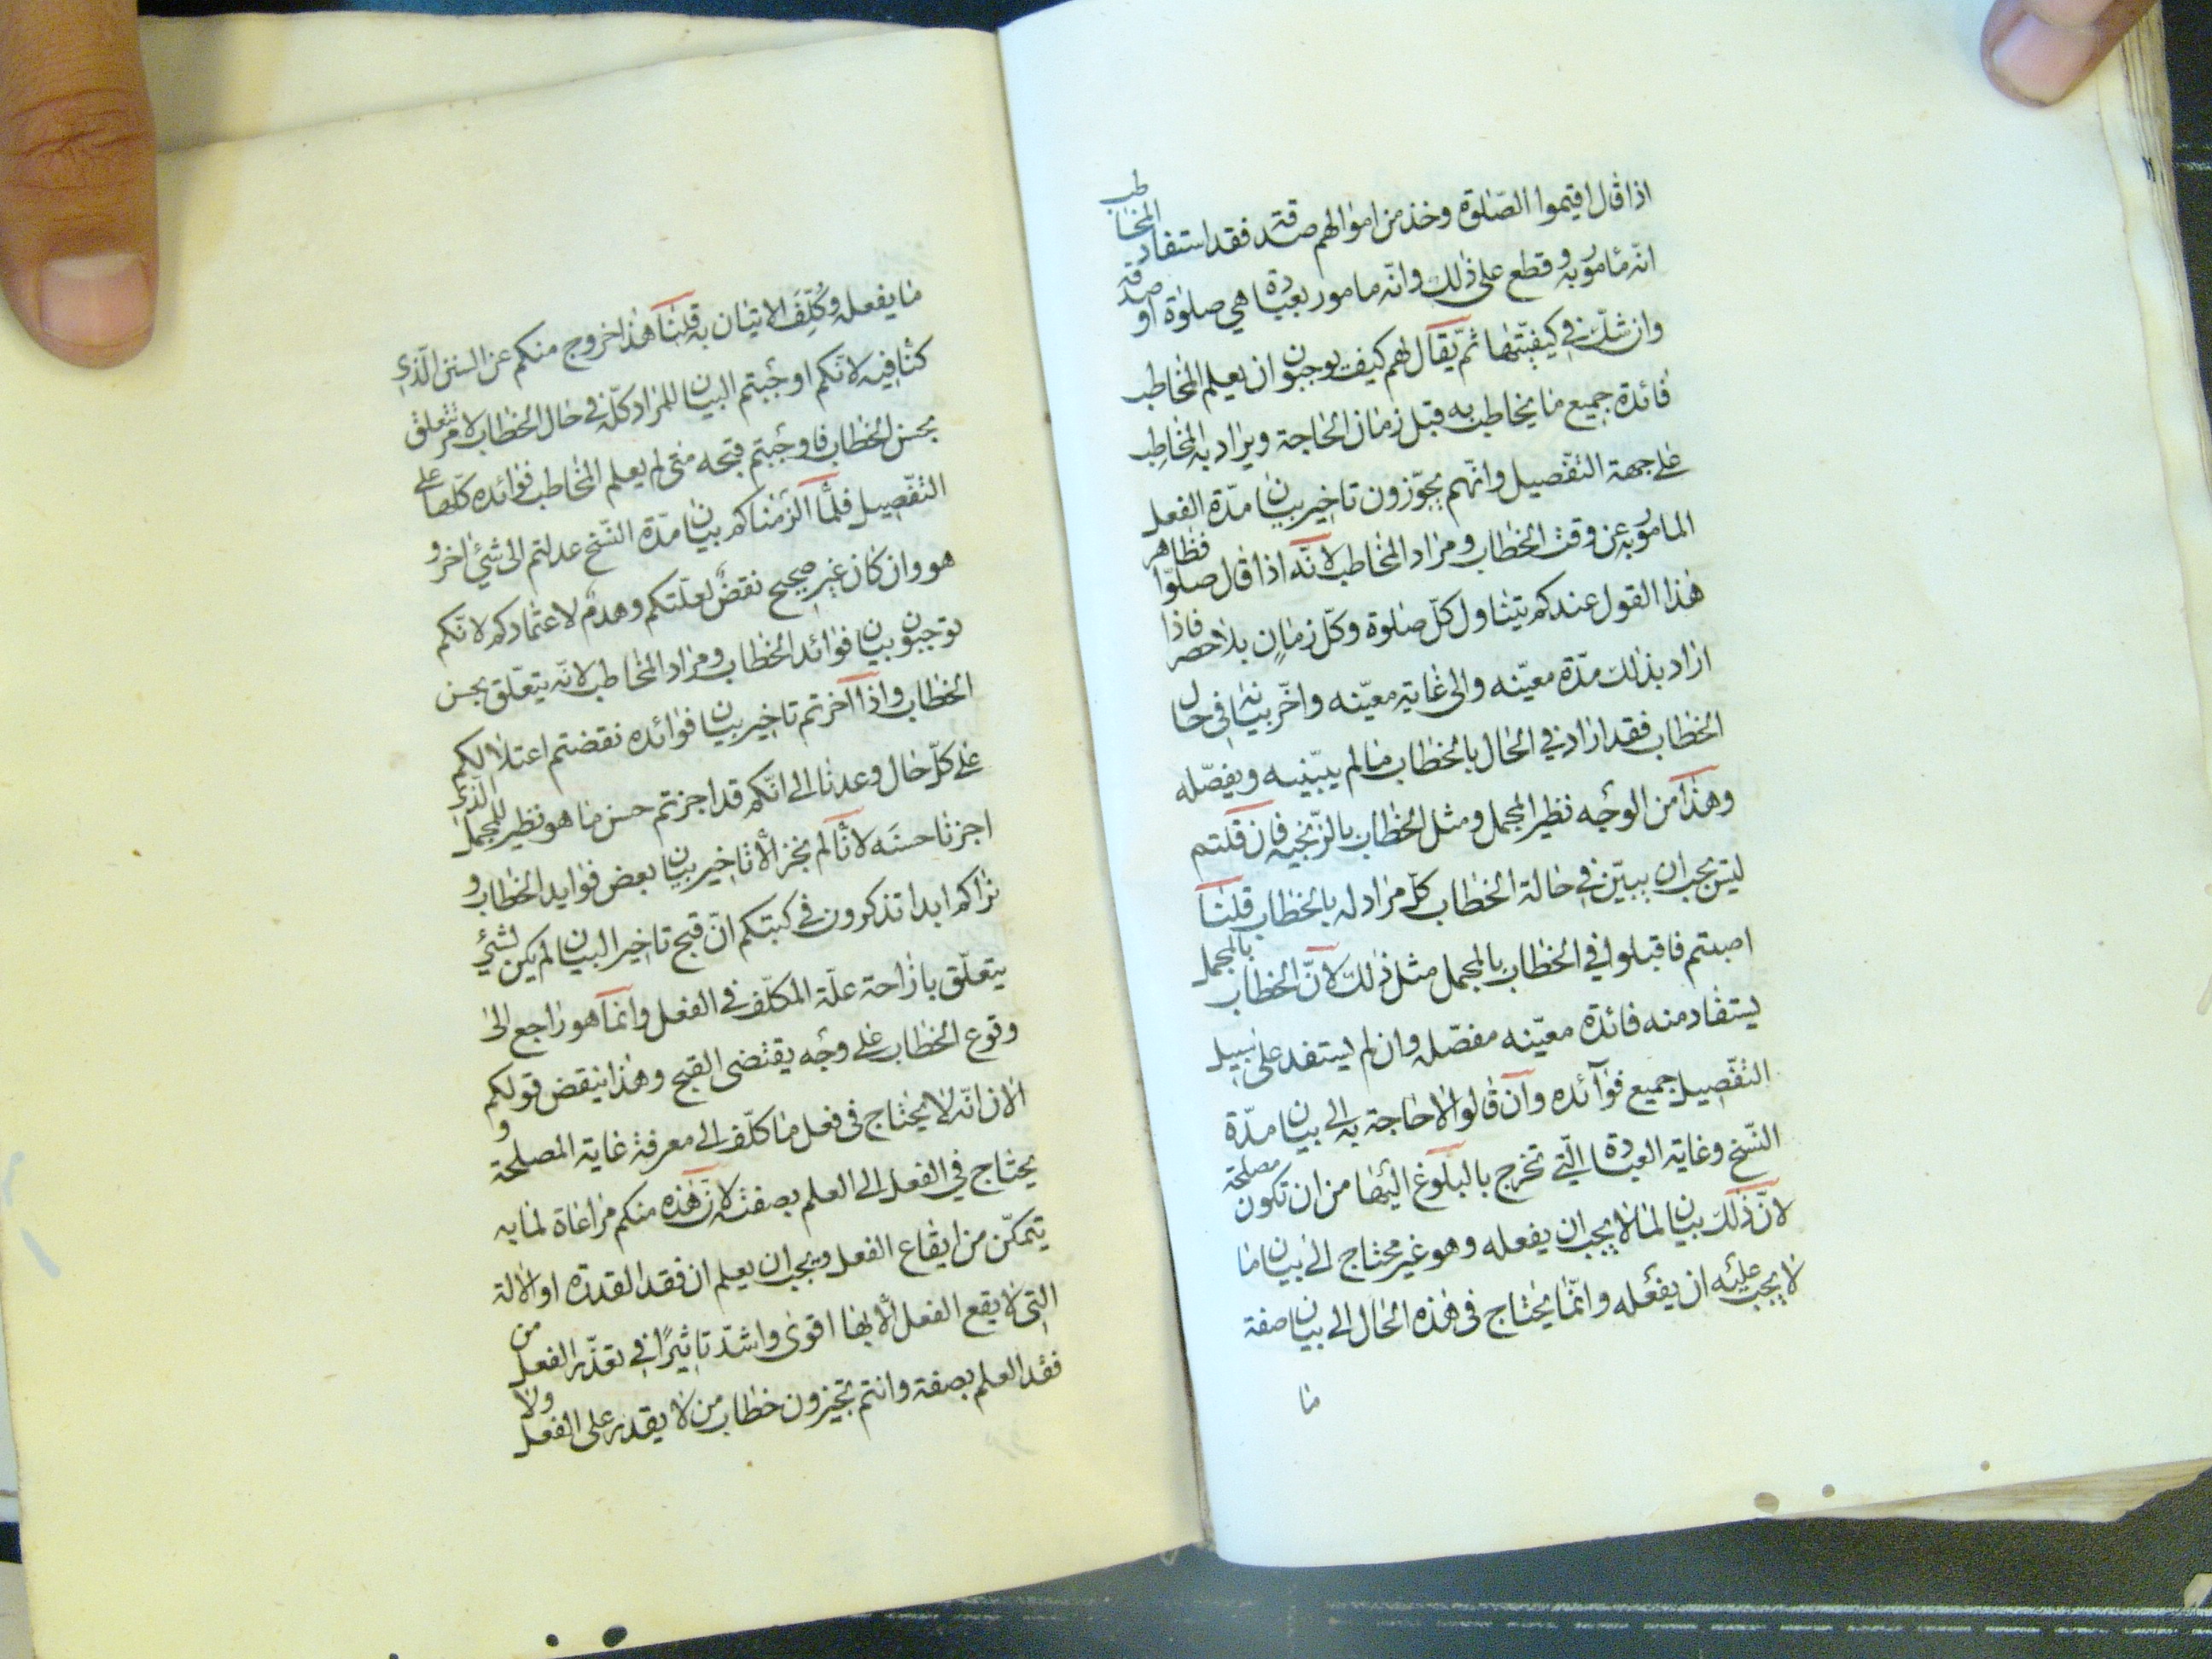 اذا قال اقيموا الصّلوة وخذ من اموالهم صدقة فقد استفاد المخاطب
انّه مامور به وقطع على ذلك وانّه مامور بعبادة هي صلوة او صدقة
وان شكّ في كيفيّتها ثمّ يقال لهم كيف يوجبون ان يعلم المخاطب
فائدة جميع ما يخاطب به قبل زمان الحاجة ويراد به المخاطب
على جهة التفصيل وانّهم يجوّزون تاخير بيان مدّة الفعل
المامور به عن وقت الخطاب ومراد المخاطب لانّه اذا قال صلوّا فظاهر
هذا القول عندكم يتناول كلّ صلوة وكلّ زمان بلا حصر فاذا
اراد بذلك مدّة معيّنه والى غاية معيّنه واخّر بيانه في حال
الخطاب فقد اراد في الحال بالخطاب ما لم يبيّنه ويفصّله
وهذا من الوجه نظير المجمل ومثل الخطاب بالزّنجيه فان قلتم
ليس يجب ان يبيّن في حالة الخطاب كلّ مراد له بالخطاب قلنا
اصبتم فاقبلوا في الخطاب بالمجمل مثل ذلك لانّ الخطاب بالمجمل
يستفاد منه فائدة معيّنه مفصّله وان لم يستفد على سبيل
التفصيل جميع فوائده وان قالوا لا حاجة به الى بيان مدّة
النّسخ وغاية العبادة الّتي تخرج بالبلوغ اليها من ان تكون مصلحة
لانّ ذلك بيان لما لا يجب ان يفعله وهو غير محتاج الى بيان ما
لا يجب عليه ان يفعله وانّما يحتاج في هذه الحال الى بيان صفة
ما
ما يفعله وكُلِّفَ الاتيان به قلنا هذا خروج منكم عن السنن الّذي
كنّا فيه لانّكم اوجبتم البيان للمراد كلّه في حال الخطاب لامر يتعلق
بحسن الخطاب فاوجبتم قبحه متى لم يعلم المخاطب فوائده كلّها على
التفصيل فلمّا الزمناكم بيان مدّة النّسخ عدلتم الى شيئ اخر و
هو وان كان غير صحيح نقضٌ لعلّتكم وهدمٌ لاعتمادكم لانّكم
توجبون بيان فوائد الخطاب ومراد المخاطب لانّه يتعلّق بحسن
الخطاب واذا اخرتم تاخير بيان فوائده نقضتم اعتلالكم
على كلّ حال وعدنا الى انّكم قد اجزتم حسن ما هو نظير للمجمل الّذي
اجزنا حسنه لانّا لم نجز الّا تاخير بيان بعض فوايد الخطاب و
نراكم ابدا تذكرون في كتبكم انّ قبح تاخير البيان لم يكن لشيئ
يتعلّق بازاحة علّة المكلّف في الفعل وانّما هو راجع الى
وقوع الخطاب على وجه يقتضى القبح وهذا ينقض قولكم
الان انّه لا يحتاج في فعل ما كلّف الى معرفة غاية المصلحة و
يحتاج في الفعل الى العلم بصفته لانّ هذه منكم مراعاة لما به
يتمكّن من ايقاع الفعل ويجب ان يعلم ان فقد القدرة او الالة
التى لا يقع الفعل الّا بها اقوى واشدّ تاثيرًا في تعذّر الفعل من
فقد العلم بصفة وانتم تجيزون خطاب من لا يقدر على الفعل ولا